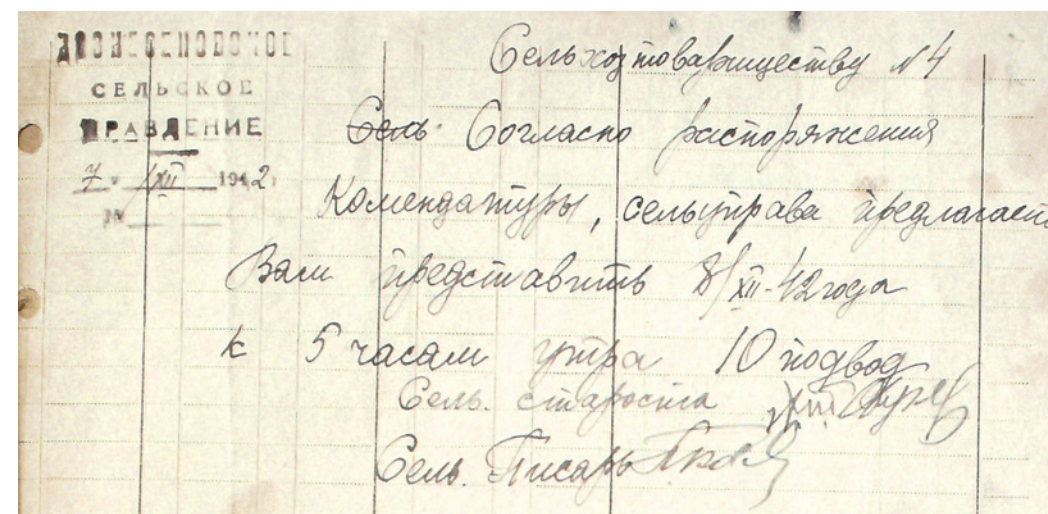 СЕЛЬСКОЕ
ПРАВДЕНИЕ
7 - XII 1942
№
Сельхозтовариществу №4
Сель. Согласно распоряжения
Комендатуры, сельуправа предлагает
Вам представить 8/XII-42 года
к 5 часам утра 10 подвод
Сель. староста
Сель. Писарь